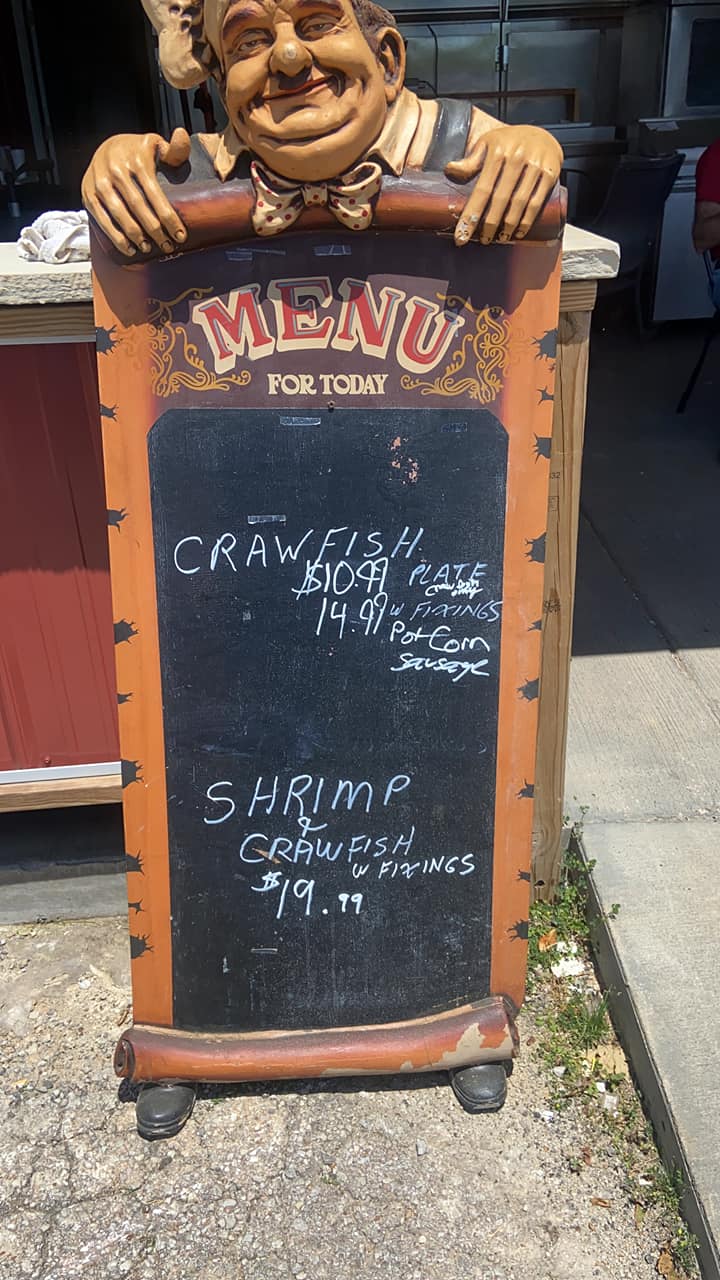 MENU
FOR TODAY
CRAWFISH
$10.99 PLATE
only
14.99 w FIXINGS
Pot Corn
Sausage
SHRIMP
&
CRAWFISH
W FIXINGS
$19.99